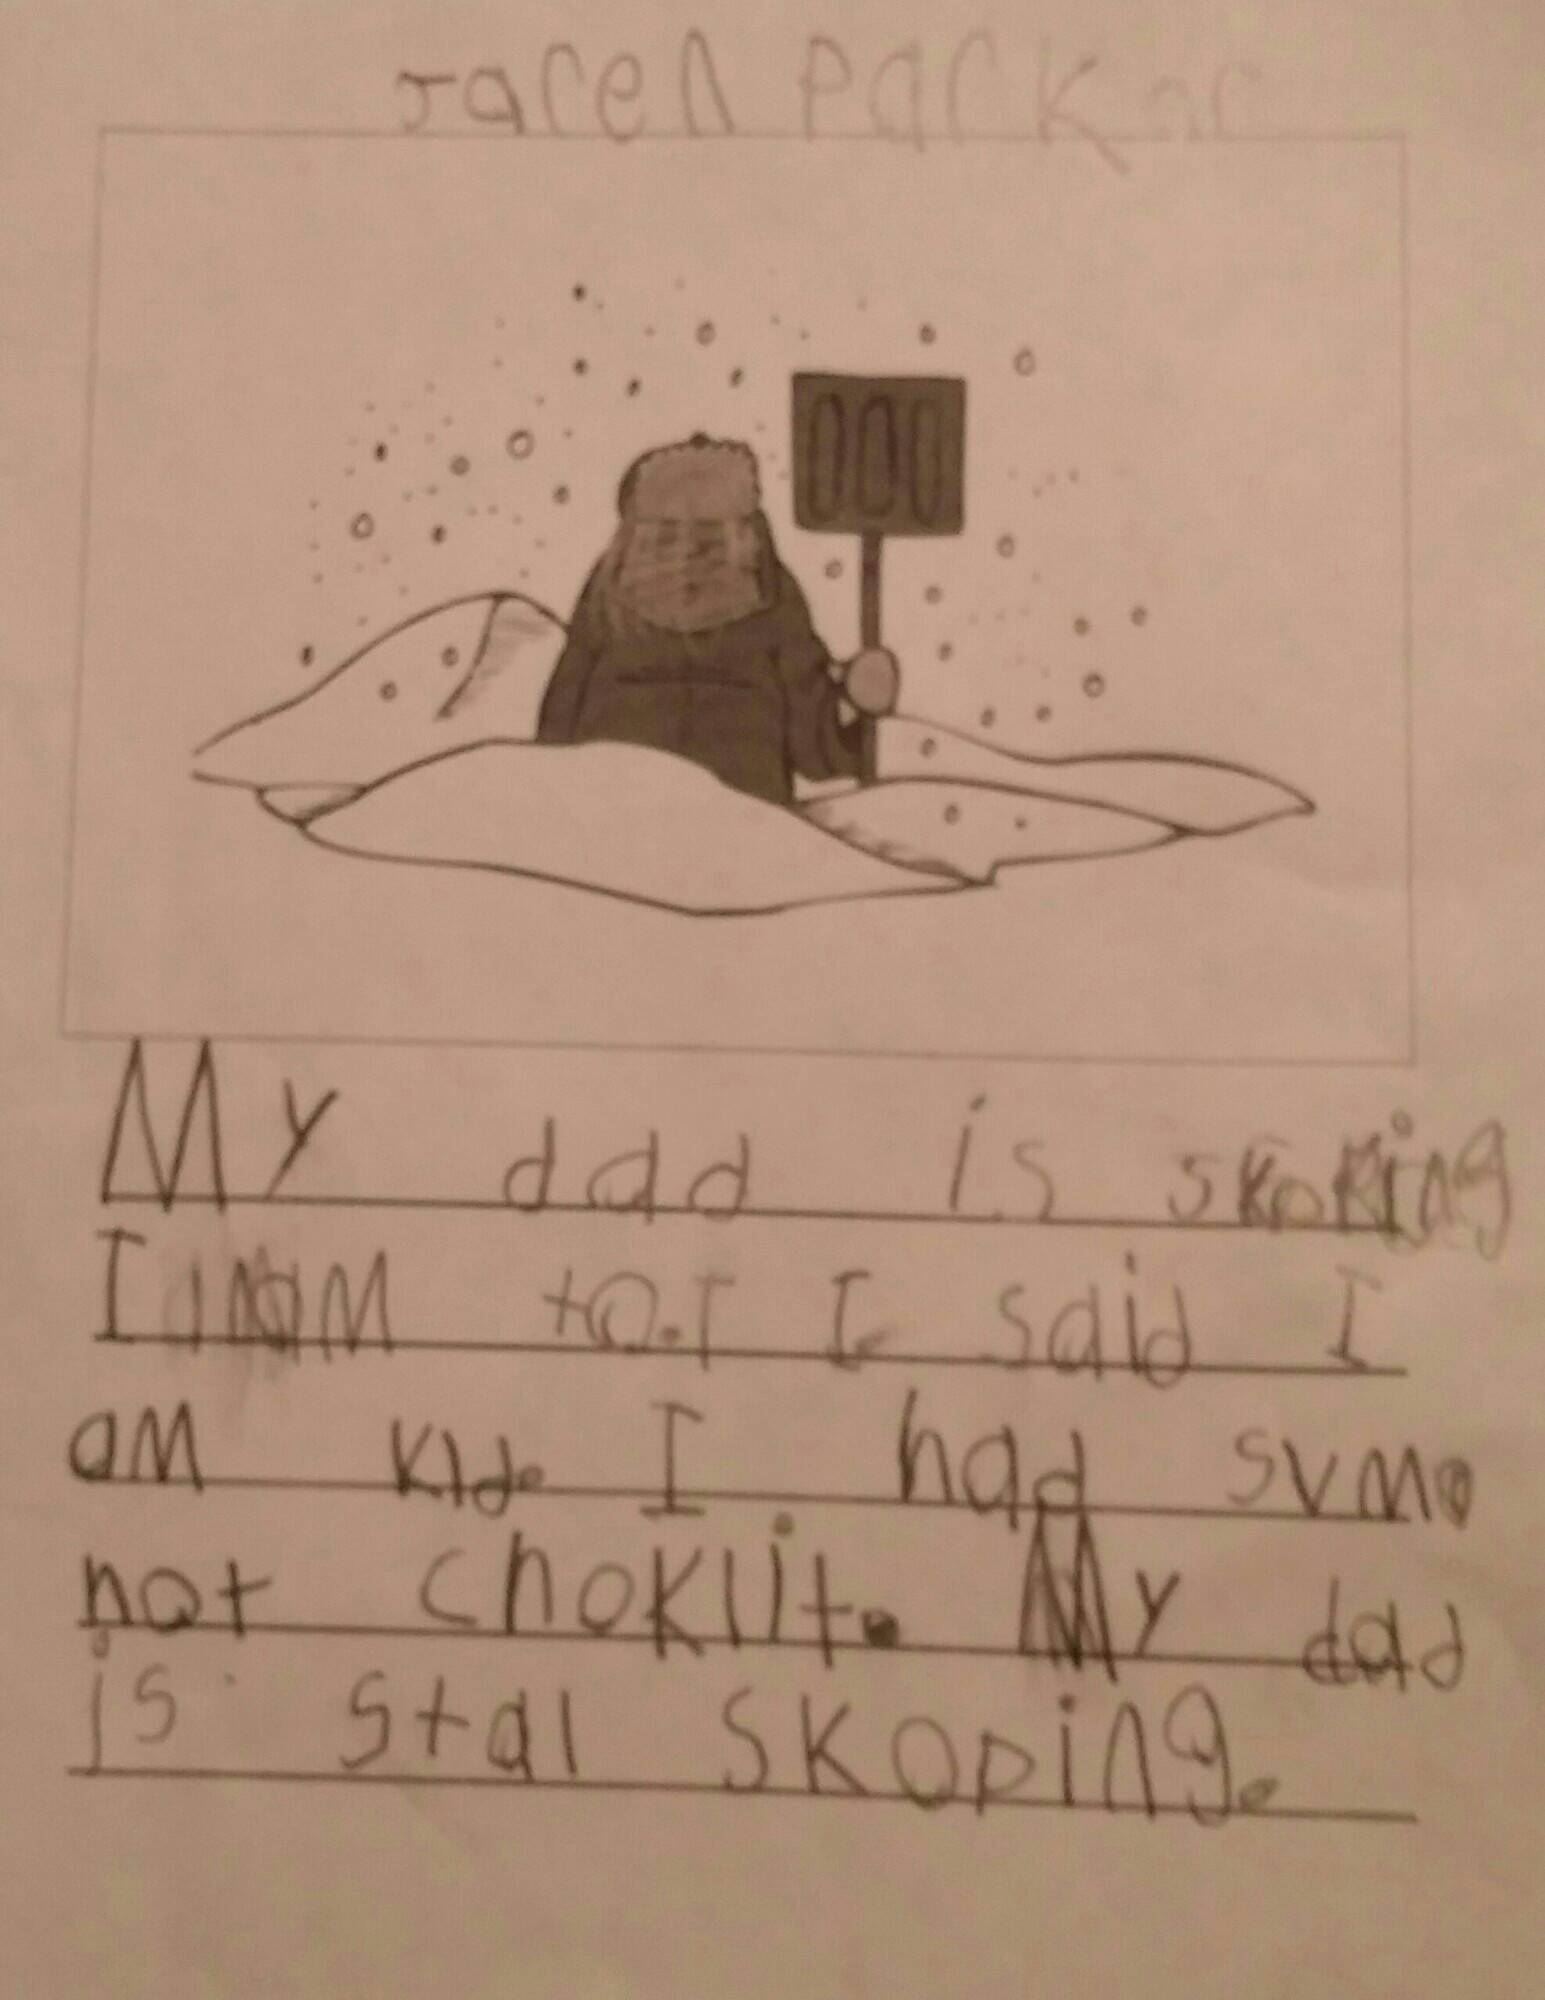 Jaren Parker
My dad is skoking
I am to. I I said I
am kld. I had svmo
hot choklit. My dad
is stal skoping.